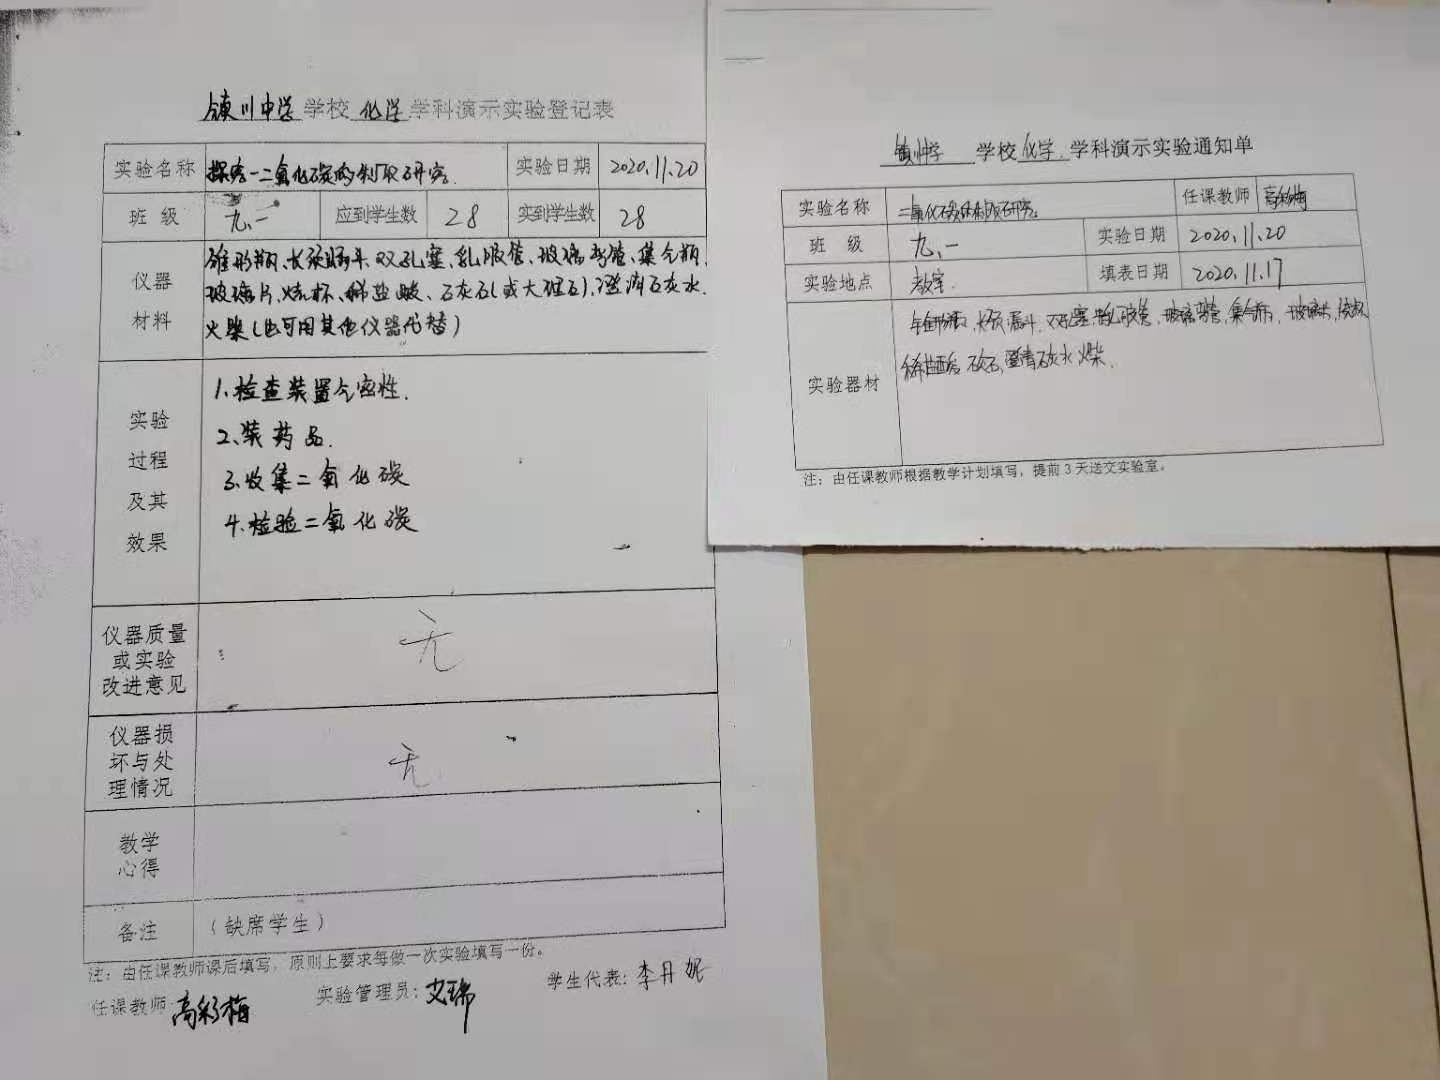 镇川中学 学校 化学 学科演示实验登记表
实验名称 探究一二氧化碳的制取研究. 实验日期 2020.11.20
班 级 九.一 应到学生数 28 实到学生数 28
仪器
材料
锥形瓶、长颈漏斗、双孔塞、乳胶管、玻璃弯管、集气瓶、
玻璃片、烧杯、稀盐酸、石灰石(或大理石)、澄清石灰水、
火柴(也可用其他仪器代替)
实验
过程
及其
效果
1、检查装置气密性.
2、装药品.
3、收集二氧化碳
4、检验二氧化碳
仪器质量
或实验
改进意见
无
仪器损
坏与处
理情况
无
教学
心得
备注 (缺席学生)
注：由任课教师课后填写，原则上要求每做一次实验填写一份。
任课教师 高彩梅 实验管理员：艾瑞 学生代表：李丹妮
镇川中学 学校 化学 学科演示实验通知单
实验名称 二氧化碳的制取研究 任课教师 高彩梅
班 级 九.一 实验日期 2020.11.20
实验地点 教室. 填表日期 2020.11.17
实验器材
锥形瓶、长颈漏斗、双孔塞、乳胶管、玻璃弯管、集气瓶、玻璃片、烧杯
稀盐酸 石灰石、澄清石灰水 火柴.
注：由任课教师根据教学计划填写，提前3天送交实验室。